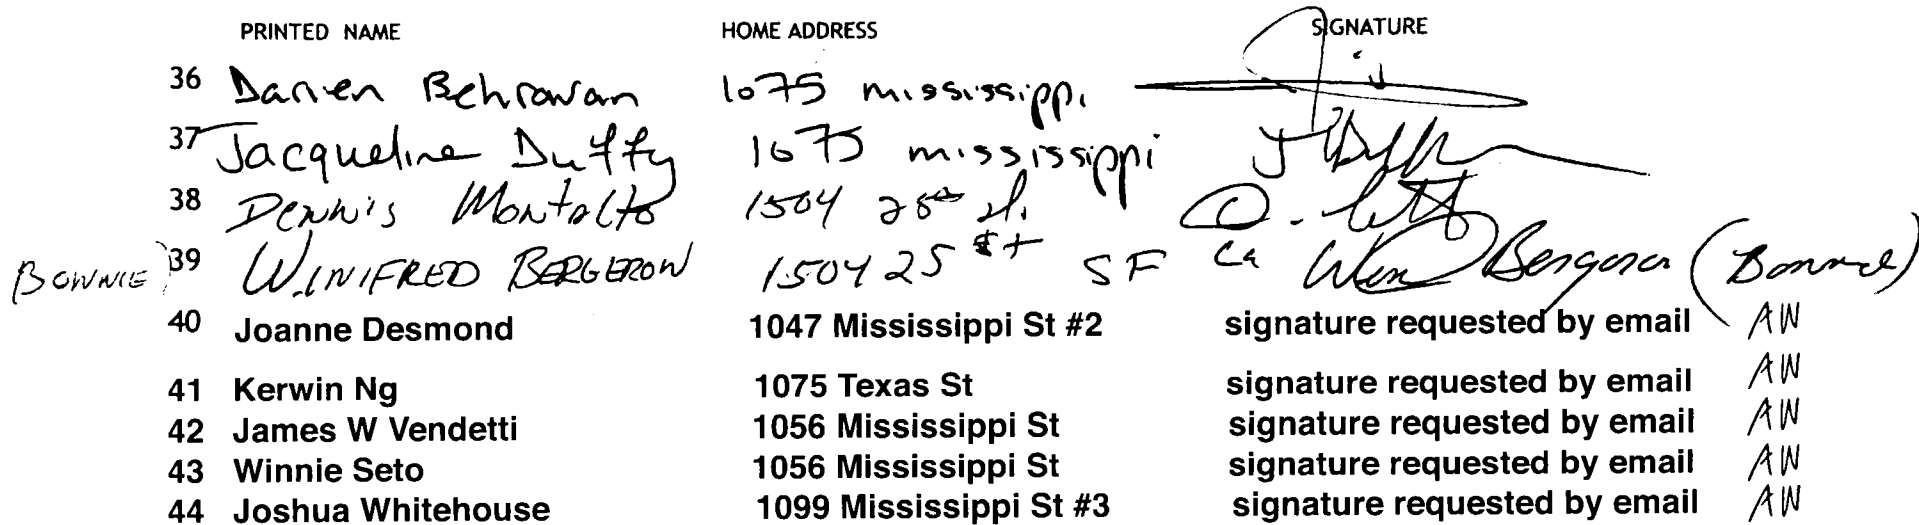 PRINTED NAME HOME ADDRESS SIGNATURE
36 Darren Behravan 1075 mississippi
37 Jacqueline Duffy 1075 mississippi
38 Dennis Montalto 1504 25th st.
BONNIE) 39 WINIFRED BERGERON 1504 25 st SF Ca Win Bergeron (Bonnie)
40 Joanne Desmond 1047 Mississippi St #2 signature requested by email AW
41 Kerwin Ng 1075 Texas St signature requested by email AW
42 James W Vendetti 1056 Mississippi St signature requested by email AW
43 Winnie Seto 1056 Mississippi St signature requested by email AW
44 Joshua Whitehouse 1099 Mississippi St #3 signature requested by email AW